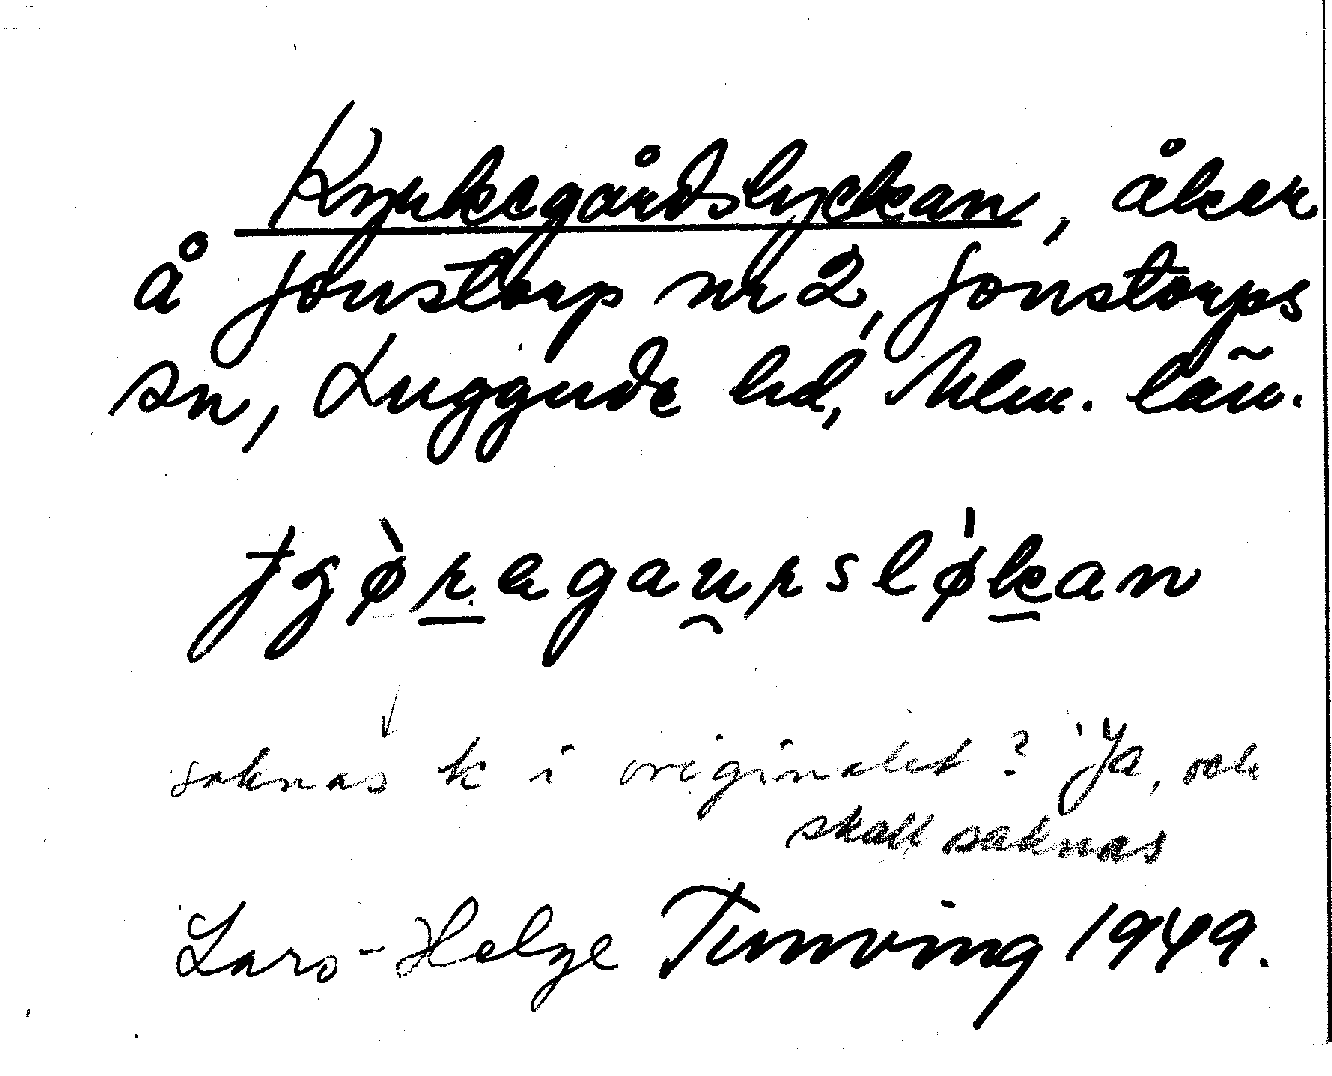 Kyrkegårdslyckan, åker
å Jonstorp nr 2, Jonstorps
sn, Luggude hd, Mlm. län.
ɟʒø̀r̠agau̯rslø̍k̠an
saknas k i originalet? Ja, och
skall saknas
Lars-Helge Tunving 1949.